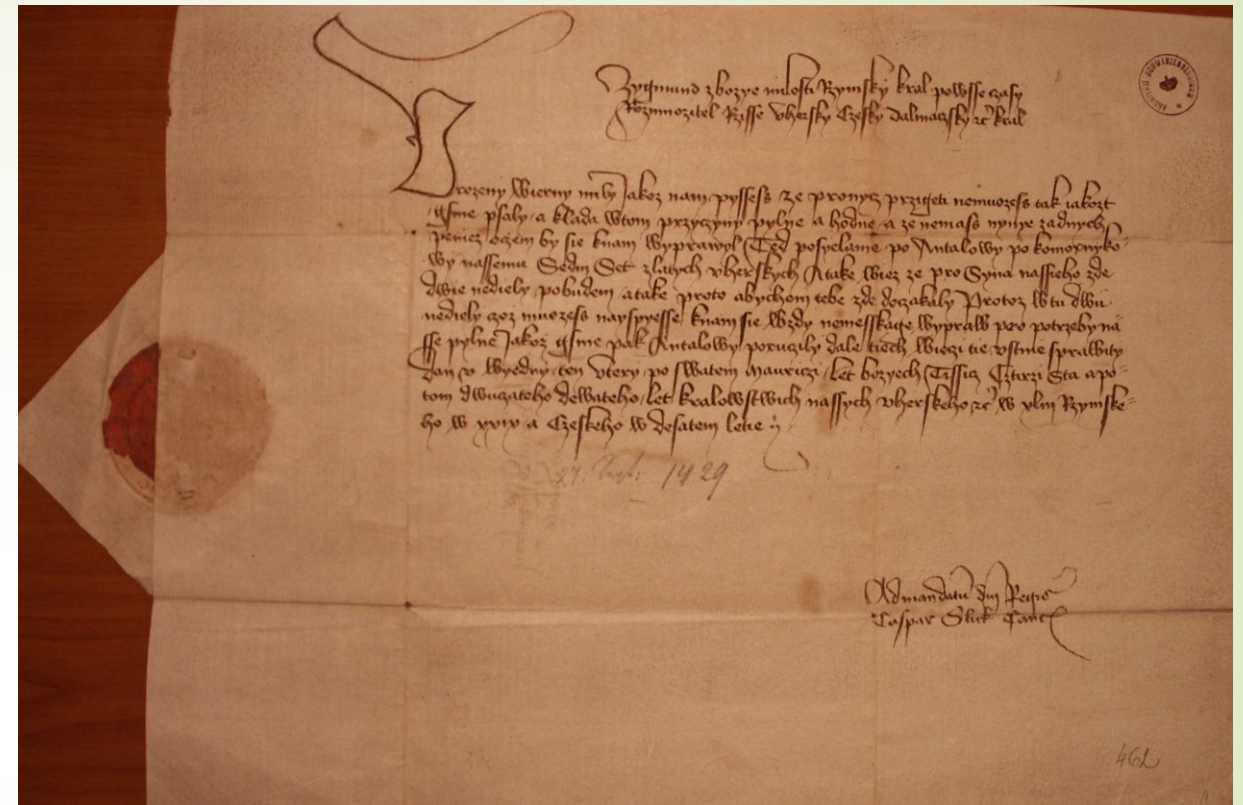 Zygmund z bozye milosti Rzymsky kral powsse czasy
Rozmnozitel Rzisse Vhersky Czesky Dalmaczsky rc̃ kral
Vrozeny Wierny mily Jakoz nam pyssess ze pronycz przigeti nemuozess tak iakozt
gsme psaly a klada wtom przyczyny pylne a hodne a ze nemass nynye zadnych
peniez oczem by sie knam wyprawyl Ted posyelame po Antalowy po komornyko-
wy nassemu Sedm Set zlatych vherskych A take wiez ze pro Syna nassieho zde
dwie nediely pobudem a take proto abychom tebe zde doczakaly Protoz w tu dwu
nediely czoz muozess nayspyesse knam sie wzdy nemesskage wypraw pro potrzeby na-
sse pylne Jakoz gsme pak Antalowy poruczily dale tiech wieczi tie vstnie sprawity
Dan v Wyedny ten Vtery po swatem Mauriczi let bozyech Tissicz Cztirzi Sta a po-
tom dwuczateho dewateho let kralowstwich nassych vherskeho rc̃ w xliij Rzymske-
ho w xxix a Czeskeho w desatem letie
27. Sept: 1429
Ad mandatu dni Regis
Caspar Slick Canc
462